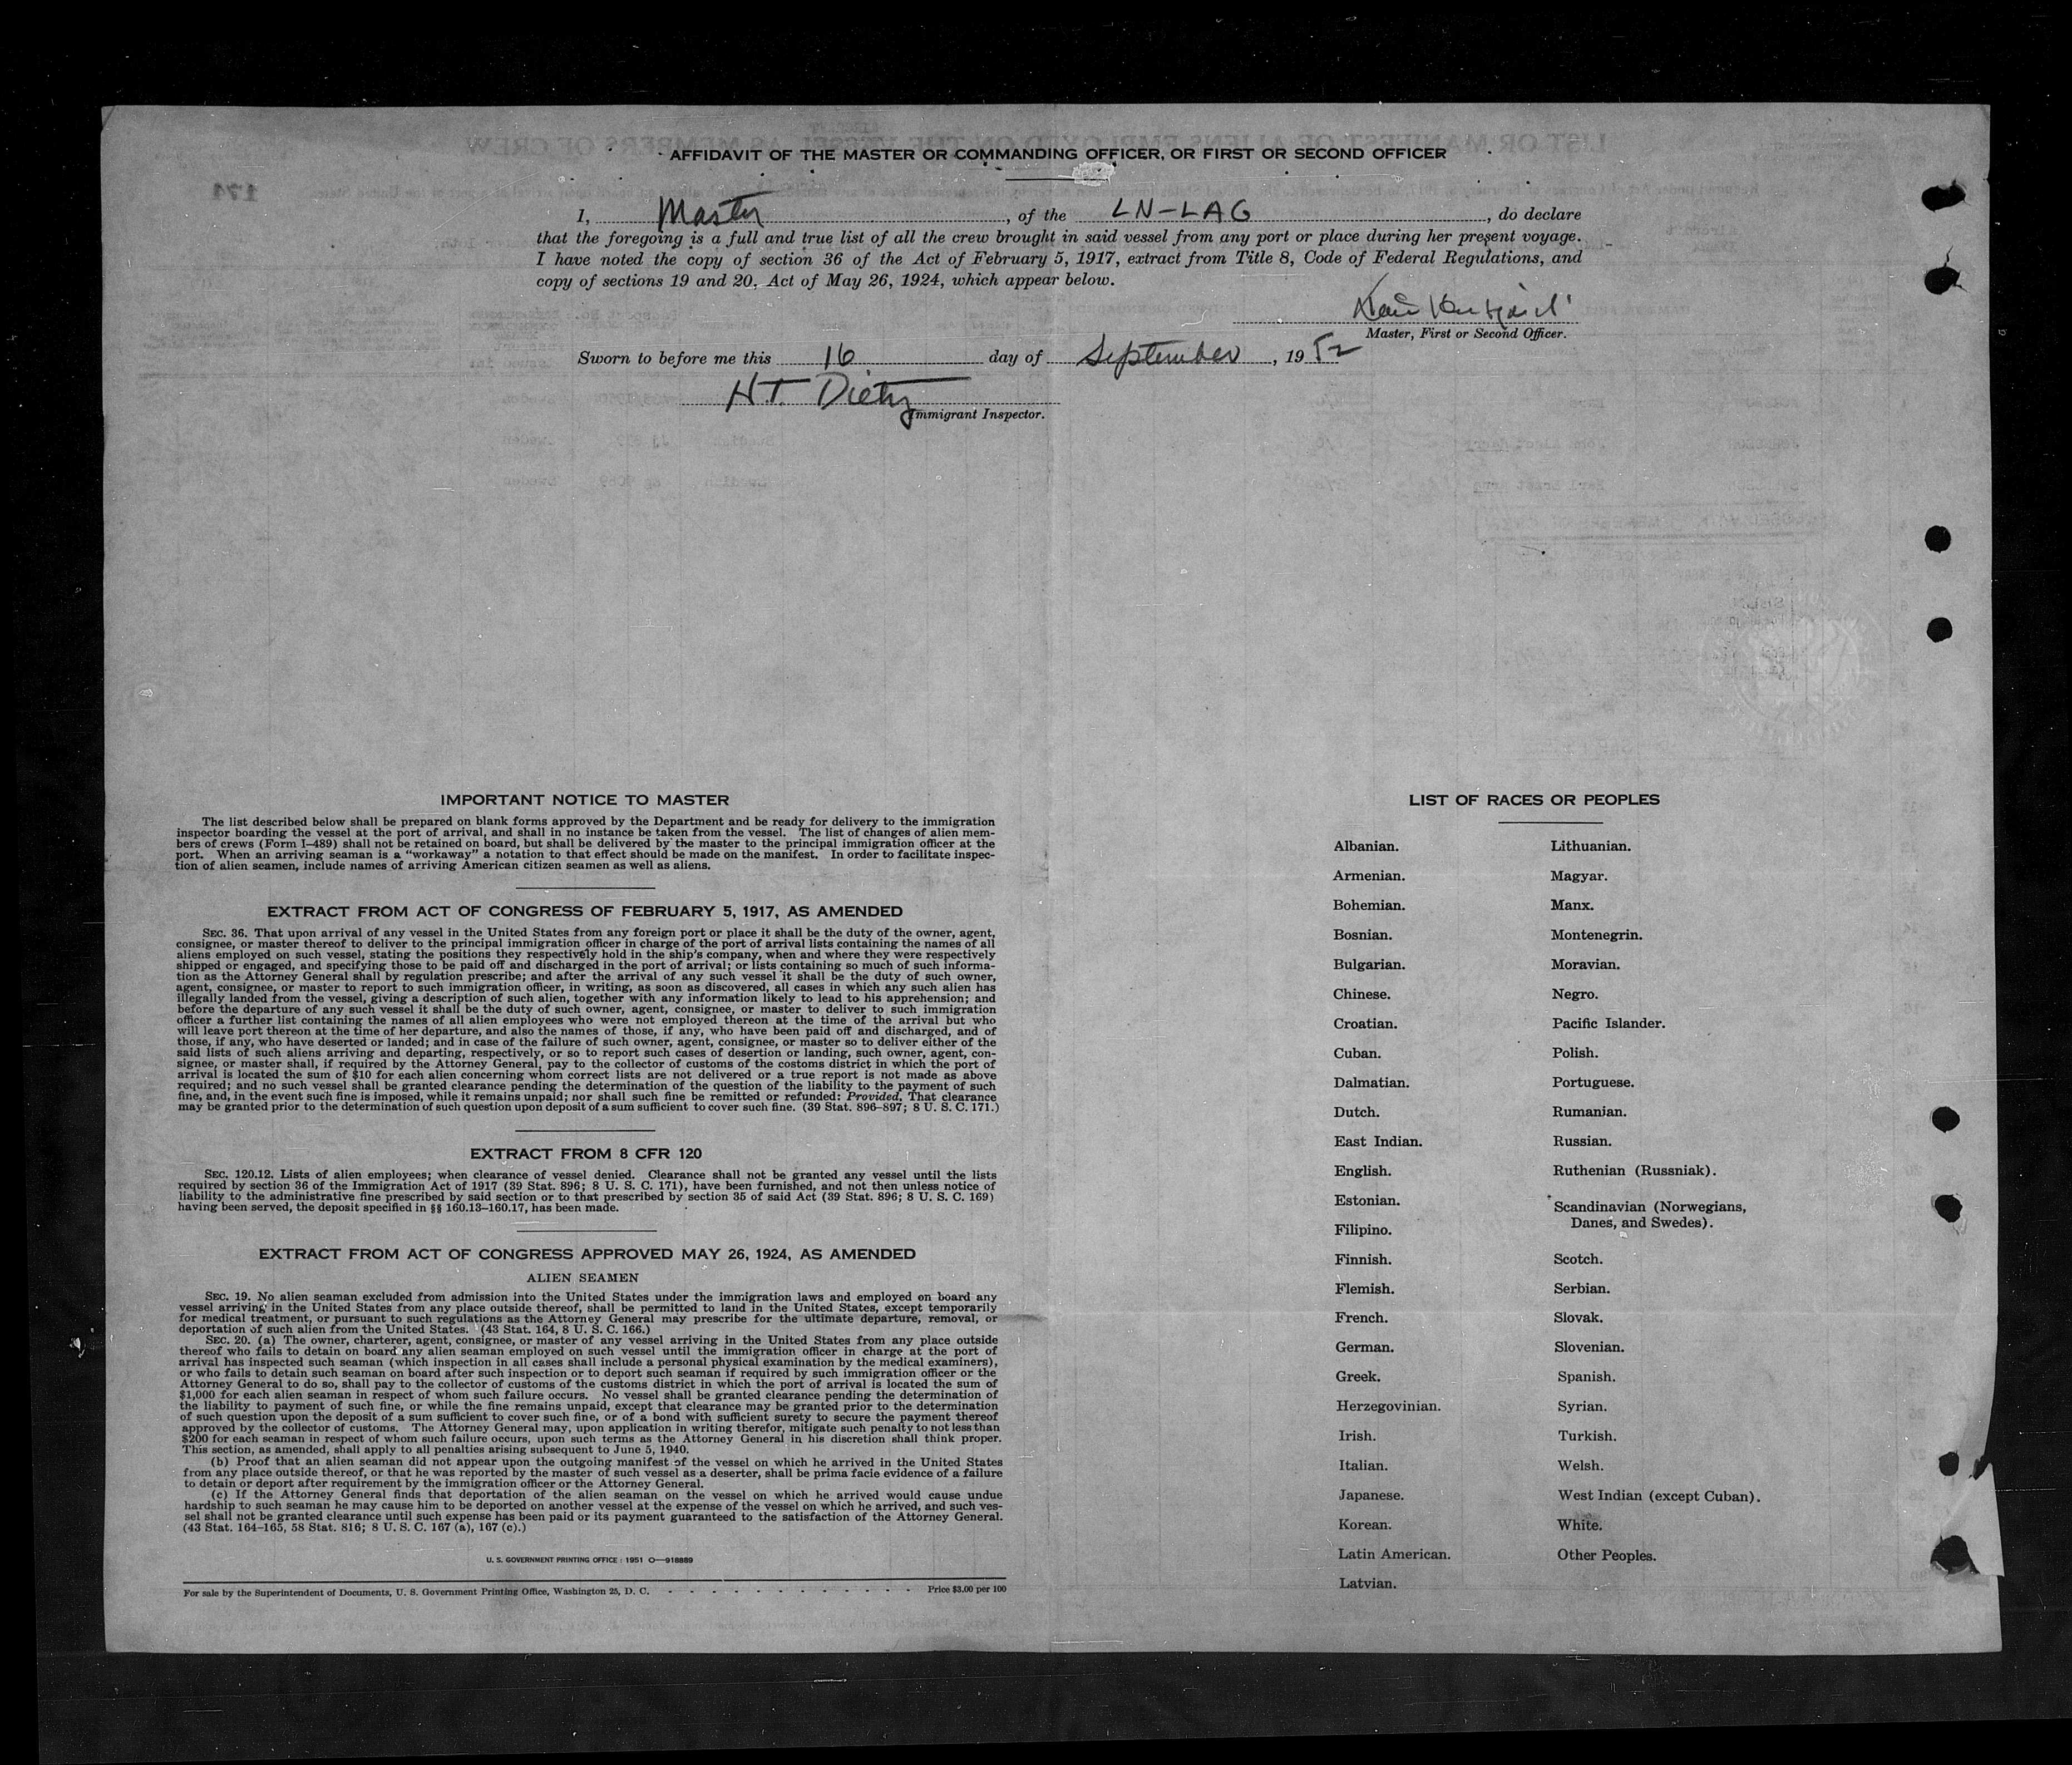 AFFIDAVIT OF THE MASTER OR COMMANDING OFFICER, OR FIRST OR SECOND OFFICER
I, Master, of the LN-LAG, do declare
that the foregoing is a full and true list of all the crew brought in said vessel from any port or place during her present voyage.
I have noted the copy of section 36 of the Act of February 5, 1917, extract from Title 8, Code of Federal Regulations, and
copy of sections 19 and 20, Act of May 26, 1924, which appear below.
Master, First or Second Officer.
Sworn to before me this 16 day of September, 1952
H.T. Dietz
Immigrant Inspector.
IMPORTANT NOTICE TO MASTER
The list described below shall be prepared on blank forms approved by the Department and be ready for delivery to the immigration
inspector boarding the vessel at the port of arrival, and shall in no instance be taken from the vessel. The list of changes of alien mem-
bers of crews (Form I-489) shall not be retained on board, but shall be delivered by the master to the principal immigration officer at the
port. When an arriving seaman is a "workaway" a notation to that effect should be made on the manifest. In order to facilitate inspec-
tion of alien seamen, include names of arriving American citizen seamen as well as aliens.
EXTRACT FROM ACT OF CONGRESS OF FEBRUARY 5, 1917, AS AMENDED
SEC. 36. That upon arrival of any vessel in the United States from any foreign port or place it shall be the duty of the owner, agent,
consignee, or master thereof to deliver to the principal immigration officer in charge of the port of arrival lists containing the names of all
aliens employed on such vessel, stating the positions they respectively hold in the ship's company, when and where they were respectively
shipped or engaged, and specifying those to be paid off and discharged in the port of arrival; or lists containing so much of such informa-
tion as the Attorney General shall by regulation prescribe; and after the arrival of any such vessel it shall be the duty of such owner,
agent, consignee, or master to report to such immigration officer, in writing, as soon as discovered, all cases in which any such alien has
illegally landed from the vessel, giving a description of such alien, together with any information likely to lead to his apprehension; and
before the departure of any such vessel it shall be the duty of such owner, agent, consignee, or master to deliver to such immigration
officer a further list containing the names of all alien employees who were not employed thereon at the time of the arrival but who
will leave port thereon at the time of her departure, and also the names of those, if any, who have been paid off and discharged, and of
those, if any, who have deserted or landed; and in case of the failure of such owner, agent, consignee, or master so to deliver either of the
said lists of such aliens arriving and departing, respectively, or so to report such cases of desertion or landing, such owner, agent, con-
signee, or master shall, if required by the Attorney General, pay to the collector of customs of the costoms district in which the port of
arrival is located the sum of $10 for each alien concerning whom correct lists are not delivered or a true report is not made as above
required; and no such vessel shall be granted clearance pending the determination of the question of the liability to the payment of such
fine, and, in the event such fine is imposed, while it remains unpaid; nor shall such fine be remitted or refunded: Provided, That clearance
may be granted prior to the determination of such question upon deposit of a sum sufficient to cover such fine. (39 Stat. 896-897; 8 U. S. C. 171.)
EXTRACT FROM 8 CFR 120
SEC. 120.12. Lists of alien employees; when clearance of vessel denied. Clearance shall not be granted any vessel until the lists
required by section 36 of the Immigration Act of 1917 (39 Stat. 896; 8 U. S. C. 171), have been furnished, and not then unless notice of
liability to the administrative fine prescribed by said section or to that prescribed by section 35 of said Act (39 Stat. 896; 8 U. S. C. 169)
having been served, the deposit specified in §§ 160.13-160.17, has been made.
EXTRACT FROM ACT OF CONGRESS APPROVED MAY 26, 1924, AS AMENDED
ALIEN SEAMEN
SEC. 19. No alien seaman excluded from admission into the United States under the immigration laws and employed on board any
vessel arriving in the United States from any place outside thereof, shall be permitted to land in the United States, except temporarily
for medical treatment, or pursuant to such regulations as the Attorney General may prescribe for the ultimate departure, removal, or
deportation of such alien from the United States. (43 Stat. 164, 8 U. S. C. 166.)
SEC. 20. (a) The owner, charterer, agent, consignee, or master of any vessel arriving in the United States from any place outside
thereof who fails to detain on board any alien seaman employed on such vessel until the immigration officer in charge at the port of
arrival has inspected such seaman (which inspection in all cases shall include a personal physical examination by the medical examiners),
or who fails to detain such seaman on board after such inspection or to deport such seaman if required by such immigration officer or the
Attorney General to do so, shall pay to the collector of customs of the customs district in which the port of arrival is located the sum of
$1,000 for each alien seaman in respect of whom such failure occurs. No vessel shall be granted clearance pending the determination of
the liability to payment of such fine, or while the fine remains unpaid, except that clearance may be granted prior to the determination
of such question upon the deposit of a sum sufficient to cover such fine, or of a bond with sufficient surety to secure the payment thereof
approved by the collector of customs. The Attorney General may, upon application in writing therefor, mitigate such penalty to not less than
$200 for each seaman in respect of whom such failure occurs, upon such terms as the Attorney General in his discretion shall think proper.
This section, as amended, shall apply to all penalties arising subsequent to June 5, 1940.
(b) Proof that an alien seaman did not appear upon the outgoing manifest of the vessel on which he arrived in the United States
from any place outside thereof, or that he was reported by the master of such vessel as a deserter, shall be prima facie evidence of a failure
to detain or deport after requirement by the immigration officer or the Attorney General.
(c) If the Attorney General finds that deportation of the alien seaman on the vessel on which he arrived would cause undue
hardship to such seaman he may cause him to be deported on another vessel at the expense of the vessel on which he arrived, and such ves-
sel shall not be granted clearance until such expense has been paid or its payment guaranteed to the satisfaction of the Attorney General.
(43 Stat. 164-165, 58 Stat. 816; 8 U. S. C. 167 (a), 167 (c).)
U. S. GOVERNMENT PRINTING OFFICE : 1951 O—918889
For sale by the Superintendent of Documents, U. S. Government Printing Office, Washington 25, D. C. - - - - - - - - - - - - Price $3.00 per 100
LIST OF RACES OR PEOPLES
Albanian.
Armenian.
Bohemian.
Bosnian.
Bulgarian.
Chinese.
Croatian.
Cuban.
Dalmatian.
Dutch.
East Indian.
English.
Estonian.
Filipino.
Finnish.
Flemish.
French.
German.
Greek.
Herzegovinian.
Irish.
Italian.
Japanese.
Korean.
Latin American.
Latvian.
Lithuanian.
Magyar.
Manx.
Montenegrin.
Moravian.
Negro.
Pacific Islander.
Polish.
Portuguese.
Rumanian.
Russian.
Ruthenian (Russniak).
Scandinavian (Norwegians,
Danes, and Swedes).
Scotch.
Serbian.
Slovak.
Slovenian.
Spanish.
Syrian.
Turkish.
Welsh.
West Indian (except Cuban).
White.
Other Peoples.